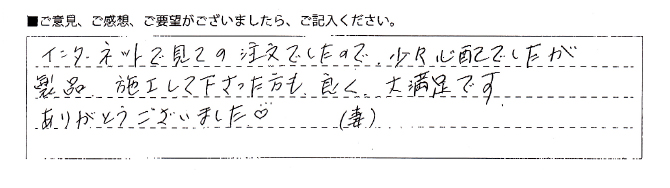 ■ご意見、ご感想、ご要望がございましたら、ご記入ください。
インターネットで見ての注文でしたので、少々心配でしたが
製品、施工して下さった方も、良く、大満足です
ありがとうございました♡　（妻）